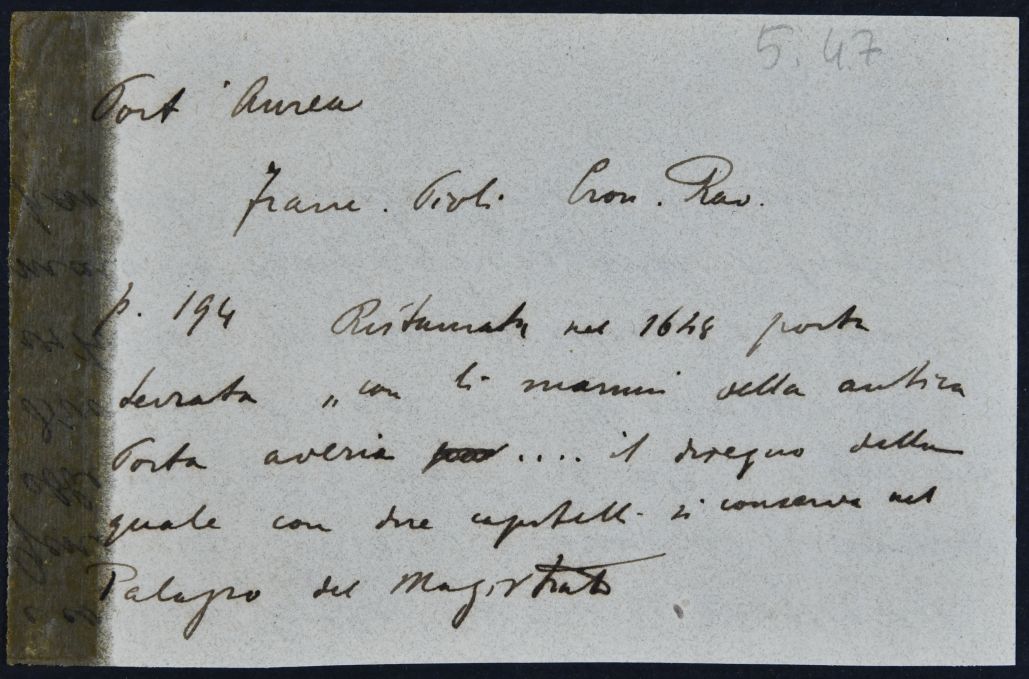 5. 47
Port' Aurea
Franc. Pivli Cron. Rav.
p. 194 Ristaurata nel 1648 porta
serrata „ con li marmi della antica
Porta averia .... il disegno della
quale con due capitelli si conserva nel
Palagio del Magistrato